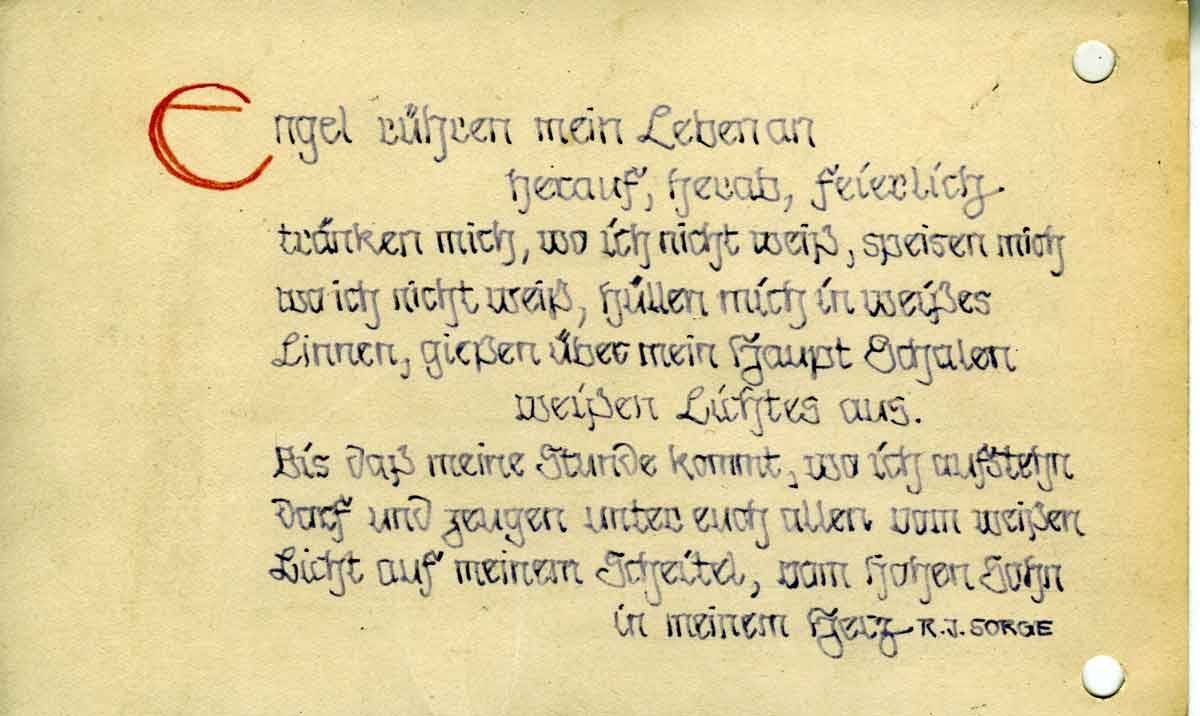 Engel rühren mein Leben an
herauf, herab, feierlich.
tränken mich, wo ich nicht weiß, speisen mich
wo ich nicht weiß, hüllen mich in weißes
Linnen, gießen über mein Haupt Schalen
weißen Lichtes aus.
Bis daß meine Stunde kommt, wo ich aufstehn
darf und zeugen unter euch allen vom weißen
Licht auf meinem Scheitel, vom hohen Sohn
in meinem Herz R.J. SORGE